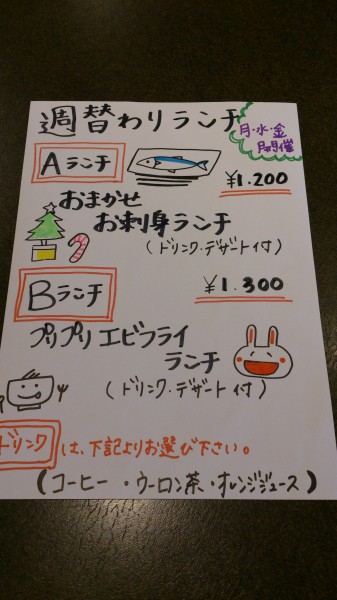 週替わりランチ
月・水・金
開催
Aランチ
¥1.200
おまかせ
お刺身ランチ
(ドリンク・デザート付)
Bランチ
¥1.300
プリプリエビフライ
ランチ
(ドリンク・デザート付)
ドリンクは、下記よりお選び下さい。
(コーヒー・ウーロン茶・オレンジジュース)